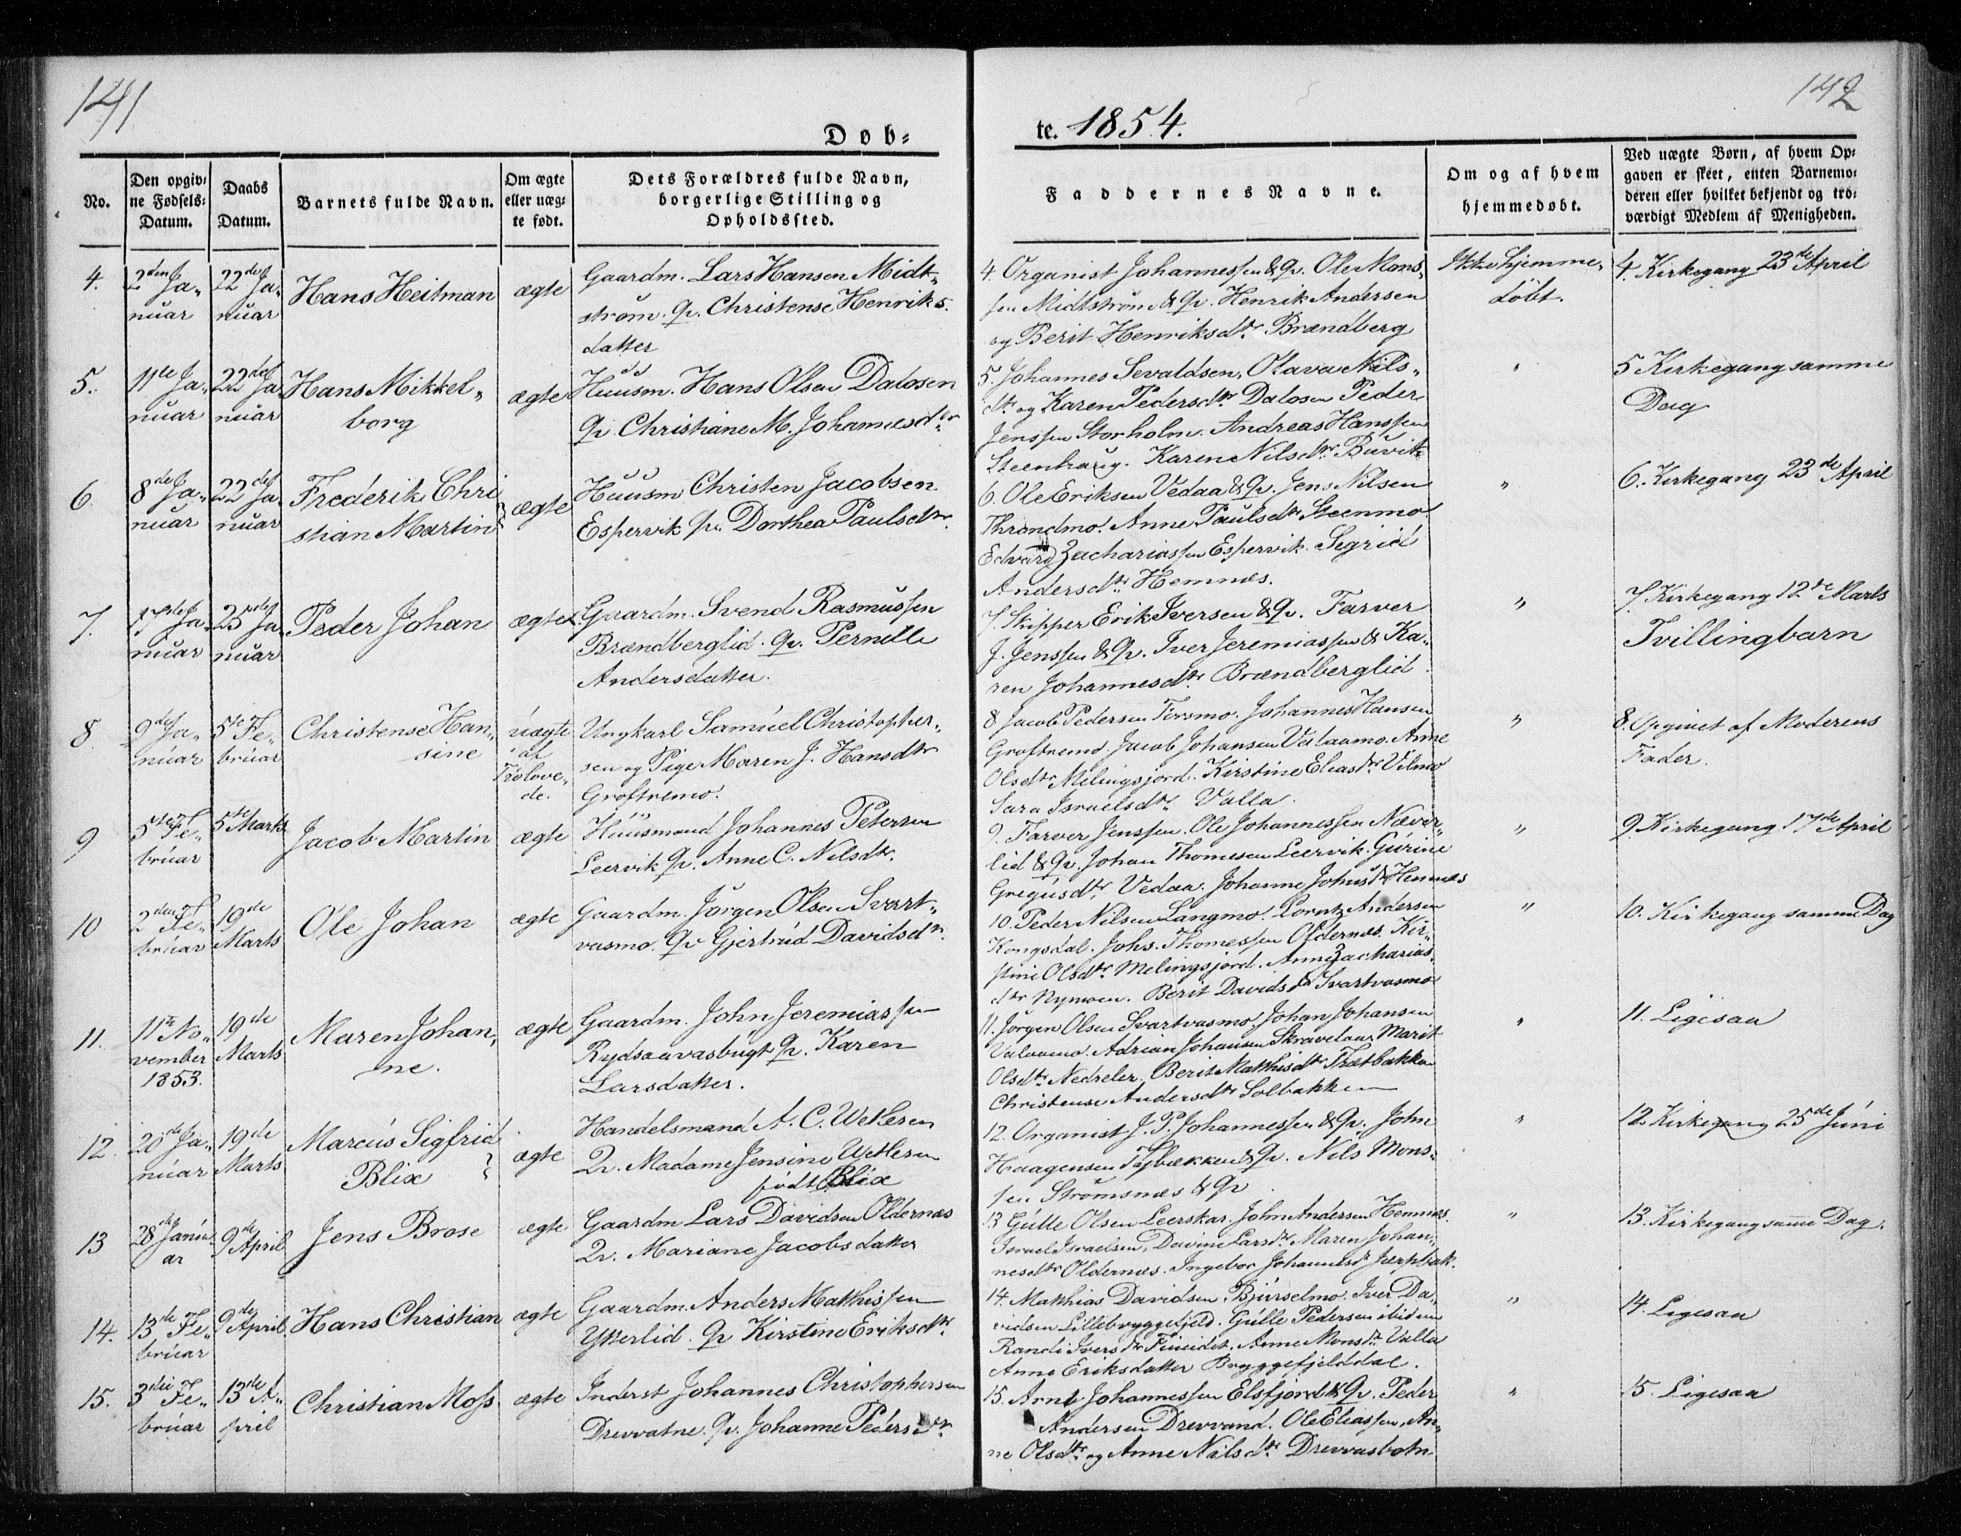 141
142
Dob-
te. 1854.
No.
Den opgiv-
ne Fødsels-
Datum.
Daabs
Datum.
Barnets fulde Navn.
Om ægte
eller uæg-
te født.
Dets Forældres fulde Navn,
borgerlige Stilling og
Opholdssted.
Faddernes Navne.
Om og af hvem
hjemmedøbt.
Ved uægte Børn, af hvem Op-
gaven er skeet, enten Barnemo-
deren eller hvilket bekjendt og tro-
værdigt Medlem af Menigheden.
4.
2den Ja-
nuar
22de Ja-
nuar
Hans Heitman
ægte
Gaardm. Lars Hansen Midt-
strøm. Qv. Christense Henriks-
datter
4. Organist Johannessen & Qv. Ole Mons-
sen Midtstrøm & Qv. Henrik Andersen
og Berit Henriksdtr Brændberg
Ikke hjemme-
døbt.
4. Kirkegang 23de April
5.
11te Ja-
nuar
22de Ja
nuar
Hans Mikkel-
borg
ægte
Huusm. Hans Olsen Dalosen
Qv. Christiane M. Johannesdtr
5. Johannes Sevaldsen, Olava Nils-
dtr og Karen Pedersdtr Dalosen Peder
Jenssen Storholm. Andreas Hanssen
Steenhaug. Karen Nilsdtr Buvik
"
5 Kirkegang samme
Dag
6.
8de Ja-
nuar
22de Ja
nuar
Frederik Chri
stian Martin
ægte
Huusm Christen Jacobsen
Espervik Qv. Dorthea Paulsdtr.
6. Ole Eriksen Vedaa & Qv. Jens Nilsen
Throndmo. Anne Paulsdtr Steenmo
Edvard Zachariassen Espervik. Segrid
Andersdtr Hemnæs.
"
6. Kirkegang 23de April
7.
17de Ja
nuar
25de Ja
nuar
Peder Johan
ægte
Gaardm. Svend Rasmussen
Brændberglid. Qv. Pernille
Andersdatter.
7. Skipper Erik Iversen & Qv. Farver
J. Jenssen & Qv. Iver Jeremiassen & Ka-
ren Johannesdtr. Brændberglid
"
7. Kirkegang 12te Marts
Tvillingbarn
8.
9de Ja-
nuar
5te Fe-
bruar
Christense Han-
sine
uægte
af
Trolove-
de.
Ungkarl Samuel Christopher-
sen og Pige Maren J. Hansdtr
Groftremo.
8. Jacob Pedersen Forsmo. Johannes Hansen
Groftremo. Jacob Johansen Valaamo. Anne
Olsdtr Melingsjord. Kirstine Eliasdtr Vilmo
Sara Israelsdtr. Valla.
"
8. Opgivet af Moderens
Fader.
9
5te Fe-
bruar
5te Marts
Jacob Martin
ægte
Huusmand Johannes Petersen
Leervik Qv. Anne C. Nilsdtr.
9. Farver Jenssen. Ole Johannessen Næver-
lid & Qv. Johan Thomesen Leervik. Gurine
Gregusdtr. Vedaa. Johanne Johnsdtr Hemnæs
"
9. Kirkegang 17de April
10
2den Fe-
bruar
19de
Marts
Ole Johan
ægte
Gaardm. Jørgen Olsen Svart-
vasmo. Qv Gjertrud Davidsdtr.
10. Peder Nilsen Langmo. Lorntz Andersen
Kongsdal. Johs. Thomessen Oldernæs. Kir-
stine Olsdtr. Melingsjord. Anne Zacharias-
dtr Nymoen. Berit Davidsdtr Svartvasmo
"
10. Kirkegang samme Dag
11.
11te No-
vember
1853.
19de
Marts
Maren Johan-
ne.
ægte
Gaardm. John Jeremiassen
Rydsaavasbugt Qv. Karen
Larsdatter.
11. Jørgen Olsen Svartvasmo Johan Johansen
Valaamo. Adrian Johansen Skravelaa Marit
Olsdtr. Nedreler. Berit Mathisdtr Trætbakken
Christense Andersdtr Solbakken
"
11. Ligesaa
12.
20de Ja-
nuar
19de
Marts
Marcus Sigfrid
Blix
ægte
Handelsmand A. C. Wetlesen
Qv. Madame Jensine Wetlesen
født Blix
12. Organist J. P. Johannessen & Qv. John
Haagensen Tjbækken & Qv. Nils Mons-
sen Strømsnæs & Qv
"
12 Kirkegang 25de Juni
13
28de Janu
ar
9de
April
Jens Brose
ægte
Gaardm Lars Davidsen Oldernæs
Qv. Mariane Jacobsdatter
13 Gulle Olsen Leerskar. John Andersen Hemnæs.
Israel Israelsen, Davine Larsdtr. Maren Johan-
nesdtr Oldernæs. Ingebor Johannesdtr Jærpbak.
"
13. Kirkegang samme Dag.
14.
13de Fe-
bruar
9de
April
Hans Christian
ægte
Gaardm. Anders Mathissen
Ytterlid. Qv Kirstine Eriksdtr.
14. Mathias Davidsen Bjurselmo. Iver Da-
vidsen Lillebryggefjeld. Gulle Pedersen ibidem
Randi Iversdtr Fineidet. Anne Monsdtr Valla
Anne Eriksdatter Bryggefjelddal.
"
14. Ligesaa
15.
3die Fe-
bruar
13de A-
pril
Christian Moss
ægte
Inderst Johannes Christophersen
Drevvatne. Qv. Johanne Pedersdtr.
15. Arnt Johannessen Elsfjord & Qv. Peder
Andersen Drevvand. Ole Eliassen, An-
ne Olsdtr og Anne Nilsdtr Drevvasbotn
"
15. Ligesaa